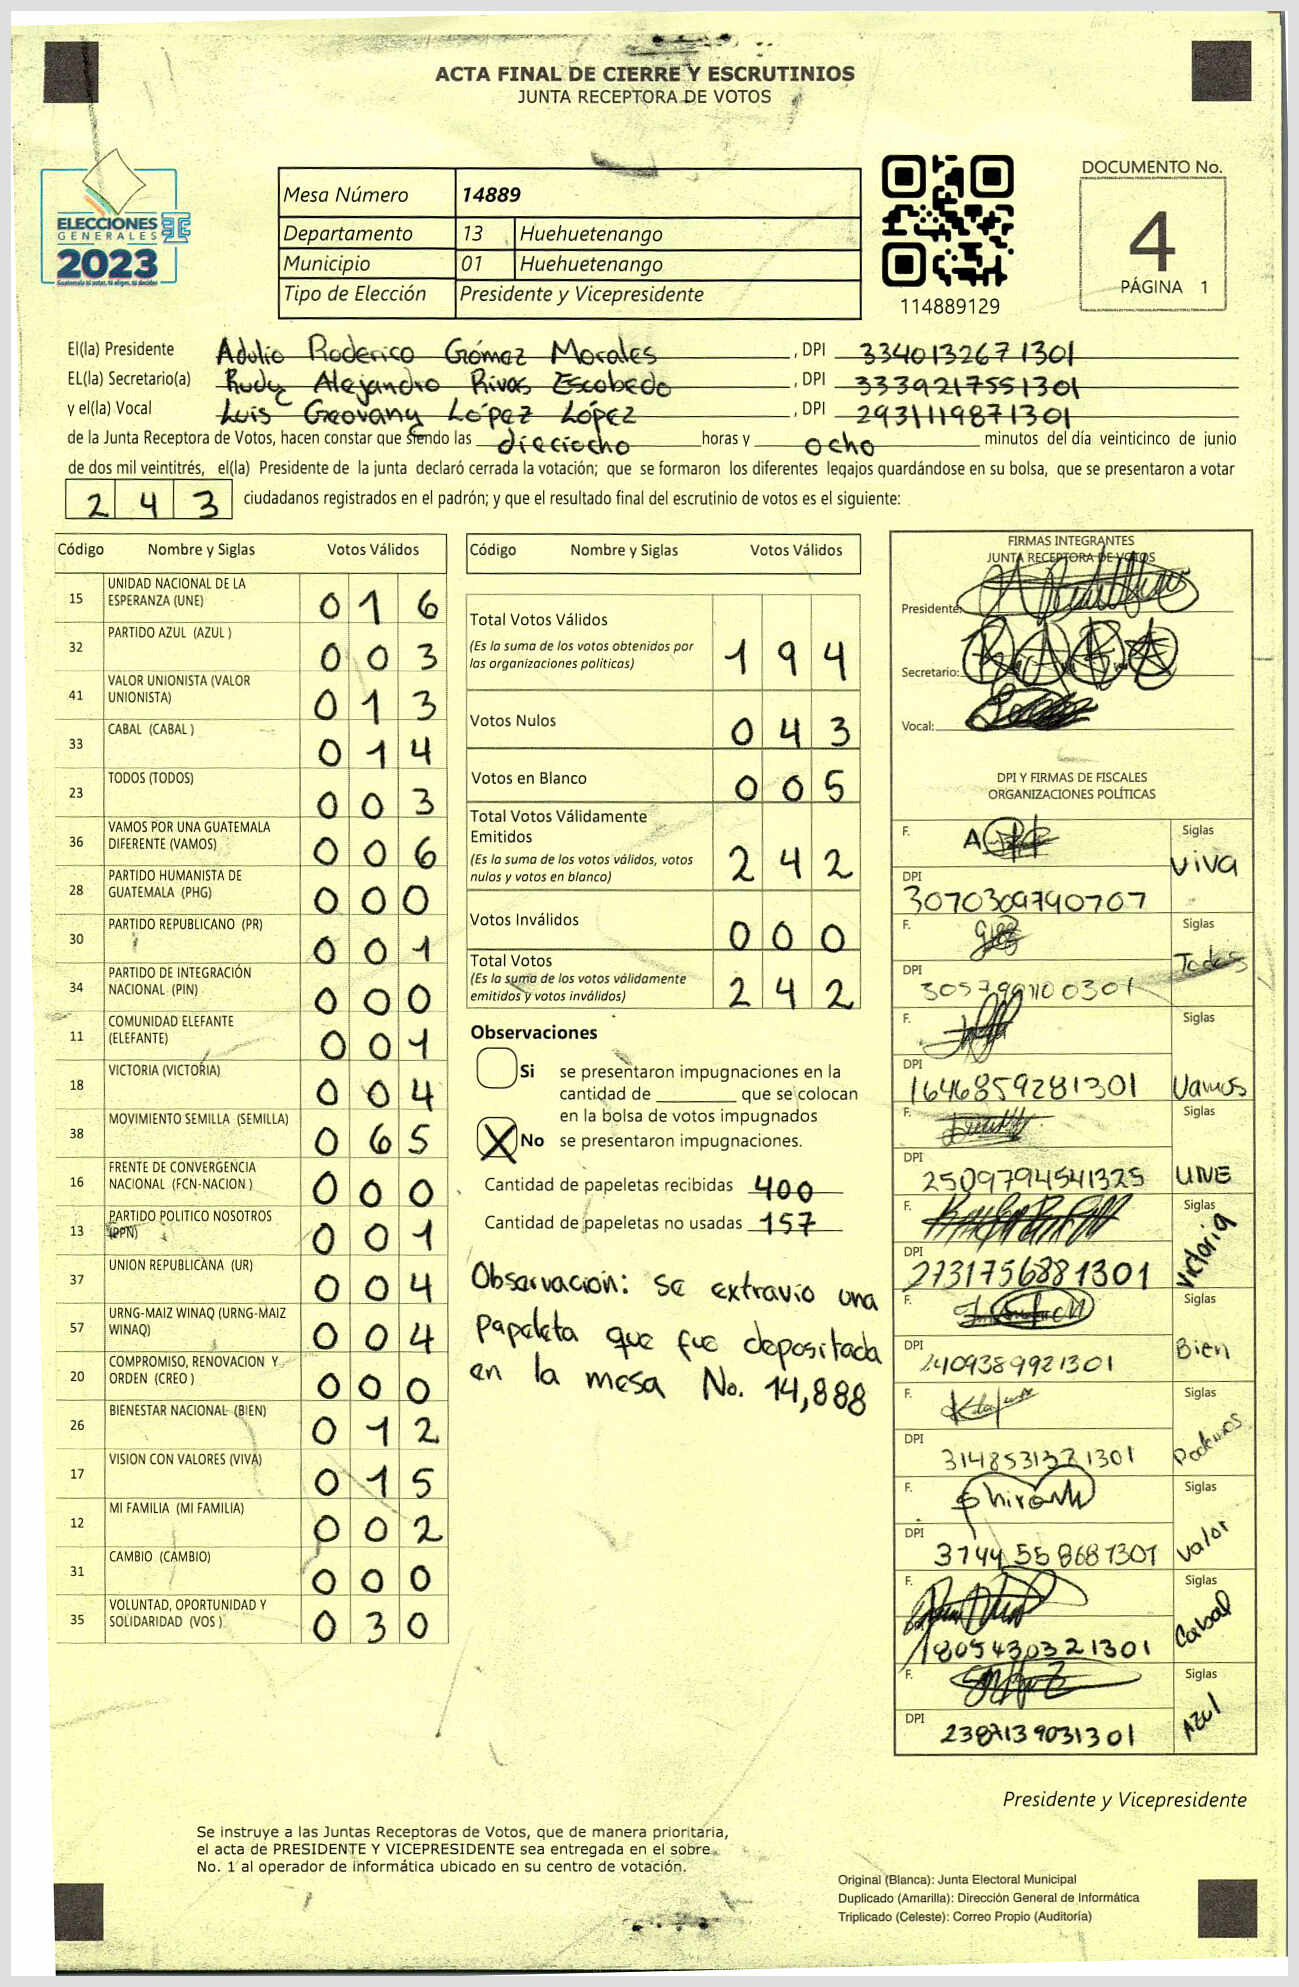 ACTA FINAL DE CIERRE Y ESCRUTINIOS
JUNTA RECEPTORA DE VOTOS
ELECCIONES
GENERALES
2023
Mesa Número 14889
Departamento 13 Huehuetenango
Municipio 01 Huehuetenango
Tipo de Elección Presidente y Vicepresidente
114889129
DOCUMENTO No.
4
PÁGINA 1
El(la) Presidente Adulio Roderico Gómez Morales , DPI 3340132671301
EL(la) Secretario(a) Rudy Alejandro Rivas Escobedo , DPI 3339217551301
y el(la) Vocal Luis Geovany López López , DPI 2931119871301
de la Junta Receptora de Votos, hacen constar que siendo las dieciocho horas y ocho minutos del día veinticinco de junio
de dos mil veintitrés, el(la) Presidente de la junta declaró cerrada la votación; que se formaron los diferentes legajos guardándose en su bolsa, que se presentaron a votar
243 ciudadanos registrados en el padrón; y que el resultado final del escrutinio de votos es el siguiente:
Código Nombre y Siglas Votos Válidos
15 UNIDAD NACIONAL DE LA ESPERANZA (UNE) 016
32 PARTIDO AZUL (AZUL ) 003
41 VALOR UNIONISTA (VALOR UNIONISTA) 013
33 CABAL (CABAL ) 014
23 TODOS (TODOS) 003
36 VAMOS POR UNA GUATEMALA DIFERENTE (VAMOS) 006
28 PARTIDO HUMANISTA DE GUATEMALA (PHG) 000
30 PARTIDO REPUBLICANO (PR) 001
34 PARTIDO DE INTEGRACIÓN NACIONAL (PIN) 000
11 COMUNIDAD ELEFANTE (ELEFANTE) 001
18 VICTORIA (VICTORIA) 004
38 MOVIMIENTO SEMILLA (SEMILLA) 065
16 FRENTE DE CONVERGENCIA NACIONAL (FCN-NACION ) 000
13 PARTIDO POLITICO NOSOTROS (PPN) 001
37 UNION REPUBLICANA (UR) 004
57 URNG-MAIZ WINAQ (URNG-MAIZ WINAQ) 004
20 COMPROMISO, RENOVACION Y ORDEN (CREO ) 000
26 BIENESTAR NACIONAL (BIEN) 012
17 VISION CON VALORES (VIVA) 015
12 MI FAMILIA (MI FAMILIA) 002
31 CAMBIO (CAMBIO) 000
35 VOLUNTAD, OPORTUNIDAD Y SOLIDARIDAD (VOS ) 030
Código Nombre y Siglas Votos Válidos
Total Votos Válidos
(Es la suma de los votos obtenidos por
las organizaciones políticas) 194
Votos Nulos 043
Votos en Blanco 005
Total Votos Válidamente
Emitidos
(Es la suma de los votos válidos, votos
nulos y votos en blanco) 242
Votos Inválidos 000
Total Votos
(Es la suma de los votos válidamente
emitidos y votos inválidos) 242
Observaciones
Si se presentaron impugnaciones en la
cantidad de ________ que se colocan
en la bolsa de votos impugnados
X No se presentaron impugnaciones.
Cantidad de papeletas recibidas 400
Cantidad de papeletas no usadas 157
Observacion: se extravio una
papeleta que fue depositada
en la mesa No. 14,888
FIRMAS INTEGRANTES
JUNTA RECEPTORA DE VOTOS
Presidente:
Secretario:
Vocal:
DPI Y FIRMAS DE FISCALES
ORGANIZACIONES POLÍTICAS
F. Siglas
viva
DPI
3070309790707
F. Siglas
Todos
DPI
F. Siglas
DPI
1646859281301 Vamos
F. Siglas
DPI
2509794541325 UNE
F. Siglas
victoria
DPI
2731756881301
F. Siglas
Bien
DPI
F. Siglas
Podemos
DPI
F. Siglas
valor
DPI
3744558687301
F. Siglas
Cabal
1805430321301
F. Siglas
Azul
DPI
Presidente y Vicepresidente
Se instruye a las Juntas Receptoras de Votos, que de manera prioritaria,
el acta de PRESIDENTE Y VICEPRESIDENTE sea entregada en el sobre
No. 1 al operador de informática ubicado en su centro de votación.
Original (Blanca): Junta Electoral Municipal
Duplicado (Amarilla): Dirección General de Informática
Triplicado (Celeste): Correo Propio (Auditoría)